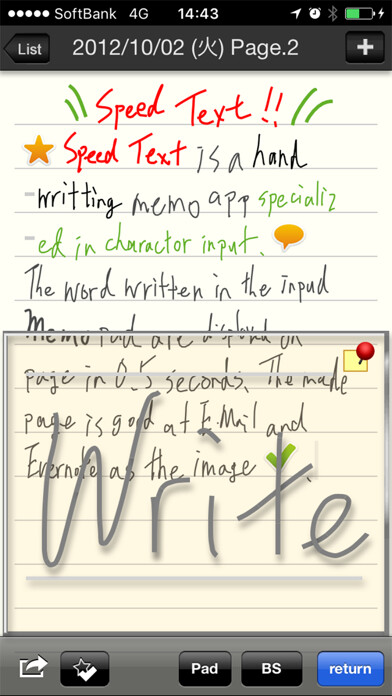 SoftBank 4G 14:43
List 2012/10/02 (火) Page.2 +
Speed Text!!
Speed Text is a hand
-writting memo app specializ
-ed in charactor input.
The word written in the inpud
Memo Pad are displayed on
page in 0.5 seconds. The made
page is good at E.Mail and
Evernote as the image
Write
Pad BS return